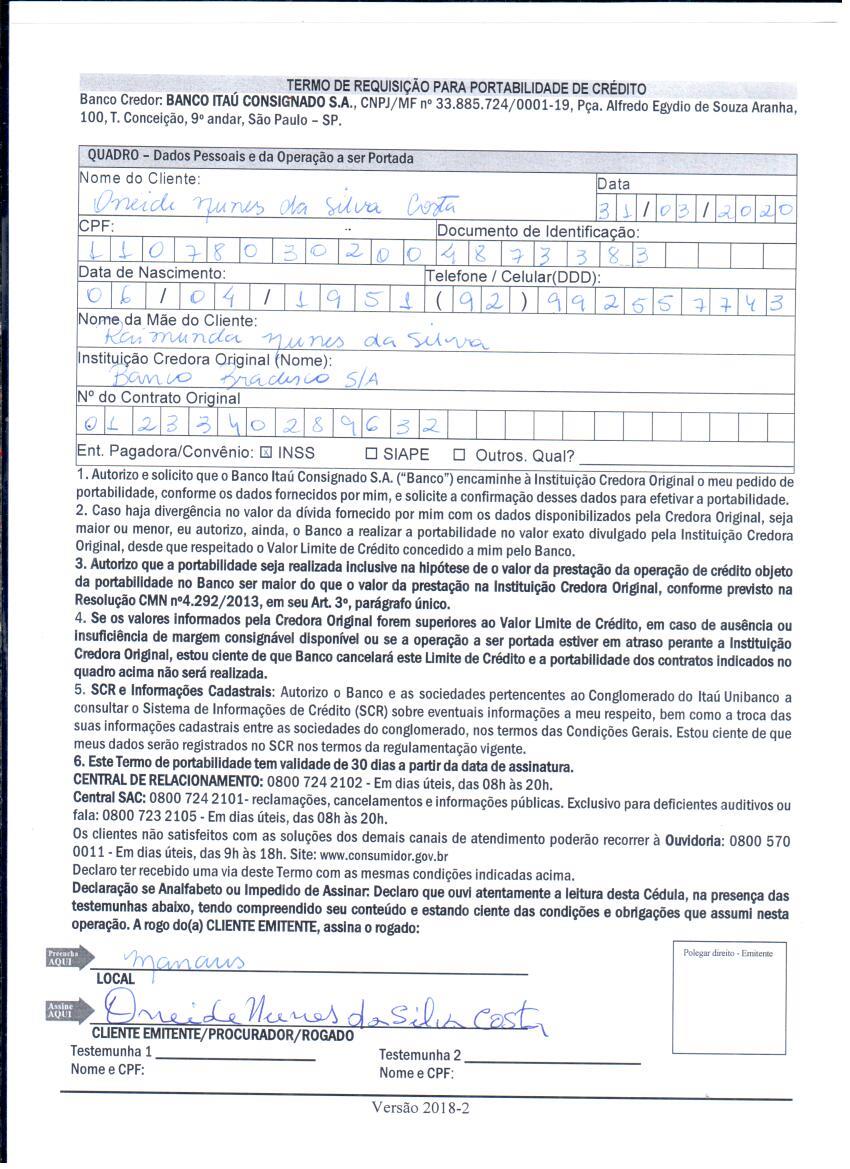 TERMO DE REQUISIÇÃO PARA PORTABILIDADE DE CRÉDITO
Banco Credor: BANCO ITAÚ CONSIGNADO S.A., CNPJ/MF nº 33.885.724/0001-19, Pça. Alfredo Egydio de Souza Aranha,
100, T. Conceição, 9º andar, São Paulo – SP.
QUADRO – Dados Pessoais e da Operação a ser Portada
Nome do Cliente: Data
Oneide Nunes da Silva Costa 31/03/2020
CPF: Documento de Identificação:
11078030200 4873383
Data de Nascimento: Telefone / Celular(DDD):
06/04/1951 (92) 992557743
Nome da Mãe do Cliente:
Raimunda Nunes da Silva
Instituição Credora Original (Nome):
Banco Bradesco S/A
Nº do Contrato Original
0123340289632
Ent. Pagadora/Convênio: ☒ INSS ☐ SIAPE ☐ Outros. Qual?
1. Autorizo e solicito que o Banco Itaú Consignado S.A. (“Banco”) encaminhe à Instituição Credora Original o meu pedido de
portabilidade, conforme os dados fornecidos por mim, e solicite a confirmação desses dados para efetivar a portabilidade.
2. Caso haja divergência no valor da dívida fornecido por mim com os dados disponibilizados pela Credora Original, seja
maior ou menor, eu autorizo, ainda, o Banco a realizar a portabilidade no valor exato divulgado pela Instituição Credora
Original, desde que respeitado o Valor Limite de Crédito concedido a mim pelo Banco.
3. Autorizo que a portabilidade seja realizada inclusive na hipótese de o valor da prestação da operação de crédito objeto
da portabilidade no Banco ser maior do que o valor da prestação na Instituição Credora Original, conforme previsto na
Resolução CMN nº4.292/2013, em seu Art. 3º, parágrafo único.
4. Se os valores informados pela Credora Original forem superiores ao Valor Limite de Crédito, em caso de ausência ou
insuficiência de margem consignável disponível ou se a operação a ser portada estiver em atraso perante a Instituição
Credora Original, estou ciente de que Banco cancelará este Limite de Crédito e a portabilidade dos contratos indicados no
quadro acima não será realizada.
5. SCR e Informações Cadastrais: Autorizo o Banco e as sociedades pertencentes ao Conglomerado do Itaú Unibanco a
consultar o Sistema de Informações de Crédito (SCR) sobre eventuais informações a meu respeito, bem como a troca das
suas informações cadastrais entre as sociedades do conglomerado, nos termos das Condições Gerais. Estou ciente de que
meus dados serão registrados no SCR nos termos da regulamentação vigente.
6. Este Termo de portabilidade tem validade de 30 dias a partir da data de assinatura.
CENTRAL DE RELACIONAMENTO: 0800 724 2102 - Em dias úteis, das 08h às 20h.
Central SAC: 0800 724 2101- reclamações, cancelamentos e informações públicas. Exclusivo para deficientes auditivos ou
fala: 0800 723 2105 - Em dias úteis, das 08h às 20h.
Os clientes não satisfeitos com as soluções dos demais canais de atendimento poderão recorrer à Ouvidoria: 0800 570
0011 - Em dias úteis, das 9h às 18h. Site: www.consumidor.gov.br
Declaro ter recebido uma via deste Termo com as mesmas condições indicadas acima.
Declaração se Analfabeto ou Impedido de Assinar: Declaro que ouvi atentamente a leitura desta Cédula, na presença das
testemunhas abaixo, tendo compreendido seu conteúdo e estando ciente das condições e obrigações que assumi nesta
operação. A rogo do(a) CLIENTE EMITENTE, assina o rogado:
Preencha AQUI Manaus
LOCAL
Polegar direito - Emitente
Assine AQUI Oneide Nunes da Silva Costa
CLIENTE EMITENTE/PROCURADOR/ROGADO
Testemunha 1 Testemunha 2
Nome e CPF: Nome e CPF:
Versão 2018-2